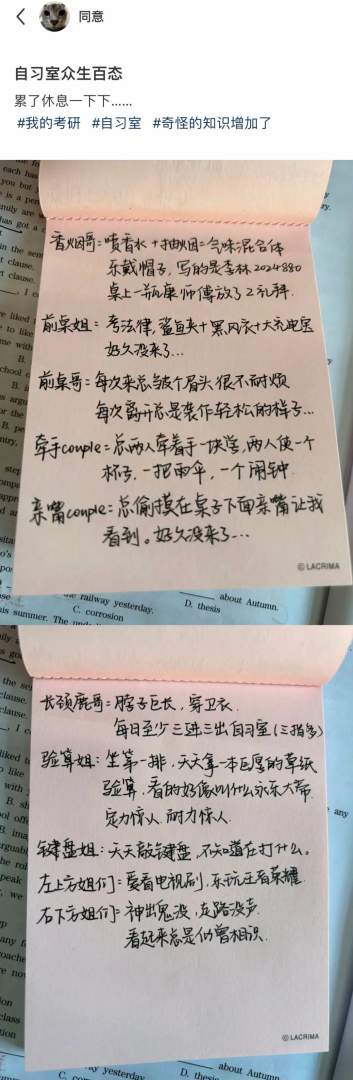 同意
自习室众生百态
累了休息一下下……
#我的考研 #自习室 #奇怪的知识增加了
香烟哥：喷香水+抽烟=气味混合体
乐戴帽子，写的是李林2024880
桌上一瓶康师傅放了2礼拜.
前桌姐：考法律，鲨鱼夹+黑风衣+大充电宝
好久没来了...
前桌哥：每次来总皱个眉头很不耐烦
每次离开总是装作轻松的样子...
牵手couple：总两人牵着手一块学，两人使一个
杯子，一把雨伞，一个闹钟.
亲嘴couple：总偷摸在桌子下面亲嘴让我
看到。好久没来了...
© LACRIMA
railway yesterday.
C. corrosion
D. thesis
about Autumn.
长颈鹿哥：脖子巨长，穿卫衣.
每日至少三进三出自习室(三指多)
验算姐：坐第一排，天天拿一本巨厚的草纸
验算，看的好像叫什么永乐大帝
定力惊人，耐力惊人.
键盘姐：天天敲键盘，不知道在打什么。
左上方姐们：爱看电视剧，乐玩王者荣耀.
右下方姐们：神出鬼没，走路没声.
看起来总是似曾相识.
© LACRIMA
yesterday.
D. thesis
about Autumn